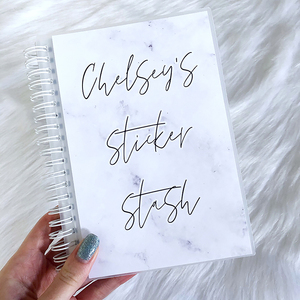 Chelsey's
sticker
stash